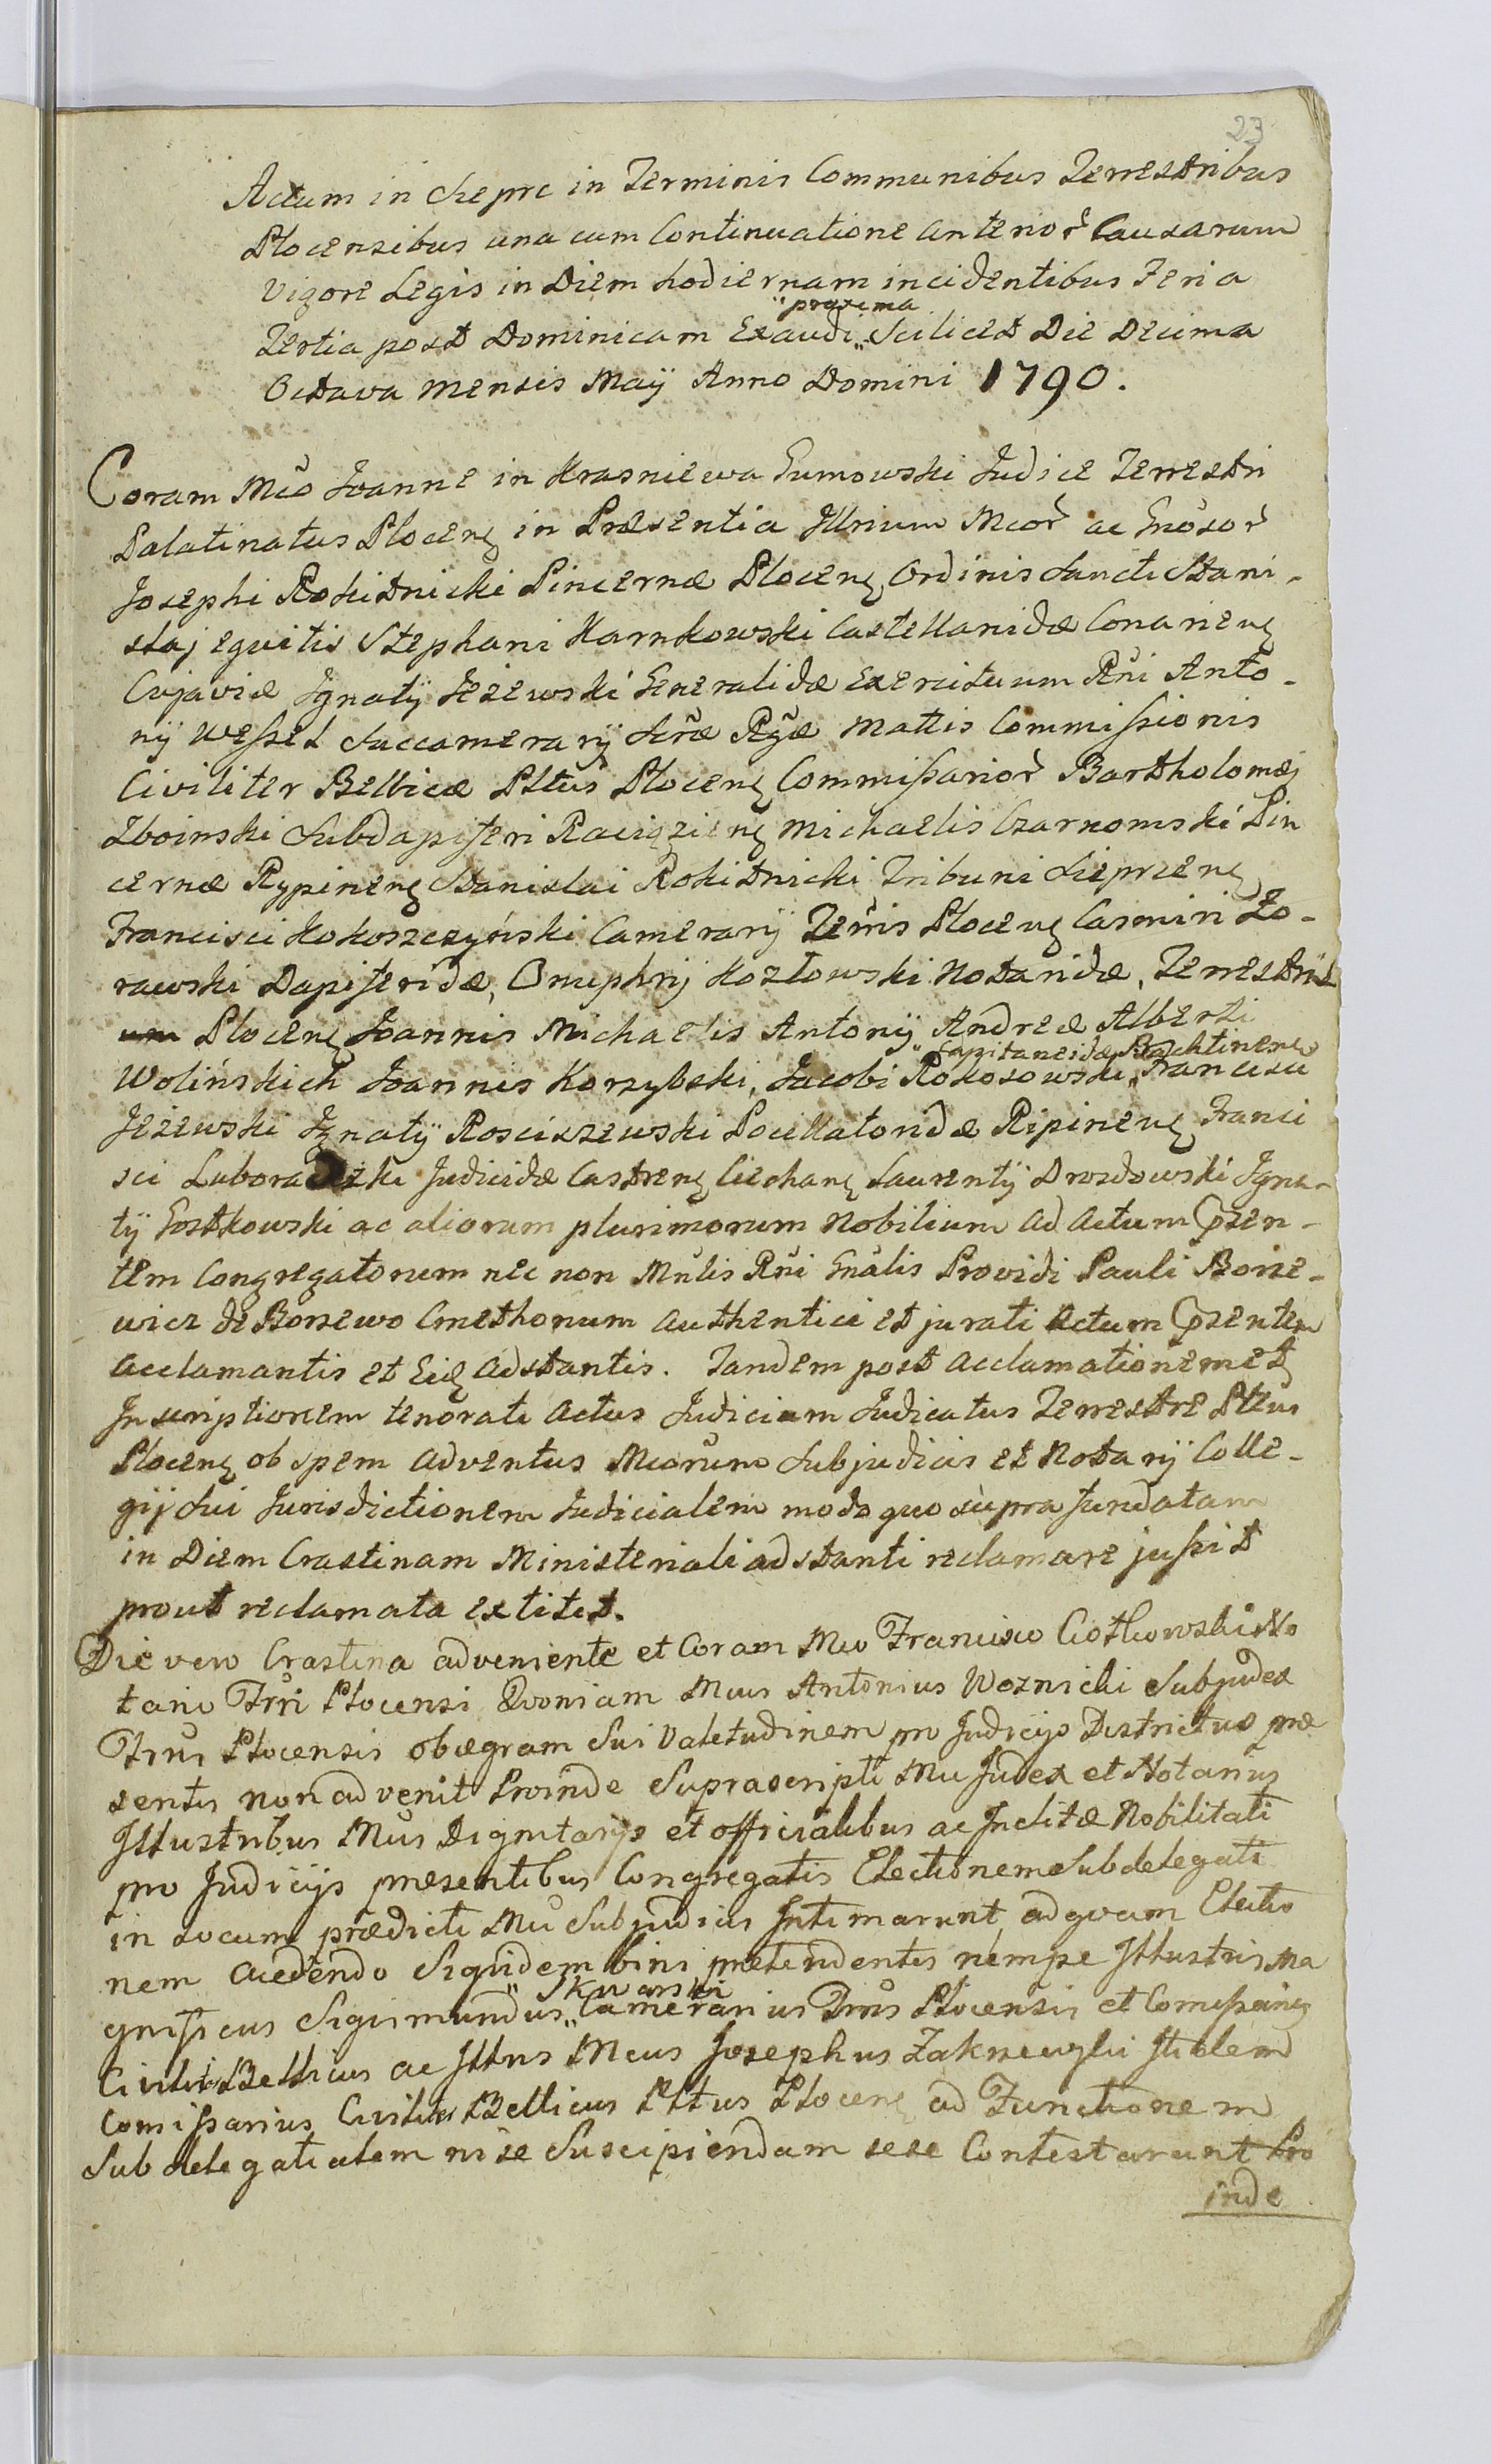 23
Actum in Sieprc in Terminis Communibus Terrestribus
Plocensibus una cum Continuatione anterior̃ Causarum
Vigore Legis in Diem hodiernam incidentibus Feria
Tertia post Dominicam Exaudi „proxima„ Scilicet Die Decima
Octava mensis Maij Anno Domini 1790.
Coram Mco Joanne in Krasniewa Gumowski Judice Terrestri
Palatinatus Plocenẽ in Præsentia Illrium Mcor̃ ac Gñosor̃
Josephi Rokitnicki Pincernæ Plocenẽ Ordinis Sancti Stani-
slaj equitis Stephani Karnkowski Castellanidæ Conarienẽ
Cujaviæ Ignatij Jeżewski Generalidæ Exercituum Rñi Anto-
nij Weſsel Succamerarij Scræ Rgæ Mattis Commiſsionis
Civiliter Bellicæ Pltus Plocenẽ Commiſsarior̃ Bartholomæj
Zboinski Subdapiferi Raciązienẽ Michaelis Czarnomski Pin
cernæ Rypinenẽ Stanislai Rokitnicki Tribuni Sieprcenẽ
Francisci Kokoszczyński Camerarij Terris Plocenẽ Casmiri Żo-
rawski Dapiferidæ, Onuphrij Kozłowski Notaridæ, Terrestris
Plocenẽ Joannis Michaelis Antonij Andreæ Alberti
Wolińskich Joannis Korzybski, Jacobi Rokosowski „Capitaneidæ„ Francisci
Jeżewski Ignatij Rosciszewski Pocillatoridæ Ripinenẽ Franci
sci Luboradzki Judicidæ Castrenẽ Ciechanẽ Laurentij Drozdowski Igna-
tij Gostkowski ac aliorum plurimorum Nobilium ad Actum Pręsen-
tem Congregatorum nec non Mñlis Rñi Gñalis Providi Pauli Borze-
wicz de Borzewo Cmethonum authentici et jurati Actum Pręsentem
acclamantis et Eidẽ adstantis. Tandem post acclamationem et
Inscriptionem tenorati Actus Judicium Judicatus Terrestre Pltus
Plocenẽ ob spem adventus Mcorum Subjudicis et Notarij Colle-
gij Sui Jurisdictionem Judicialem modo quo supra fundatam
in Diem Crastinam Ministeriali adstanti reclamare juſsit
prout reclamata extitit.
Die vero Crastina adveniente et Coram Mco Francisco Ciotkowski No
tario Trri Plocensi Quoniam Mcus Antonius Woznicki Subjudex
Trris Plocensis ob ægram Sui Valetudinem pro Judicijs Districtus præ
sentis non advenit Proinde Suprascripti Mci Judex et Notarius
Illustribus Mcis Dignitarijs et officialibus ac Inclitæ Nobilitati
pro Judicijs præsentibus Congregatis Electionem Subdelegati
in locum prædicti Mci Subjudicis Intimarunt ad quam Electio
nem accedendo Siquidem bini prætendentes nempe Illustris Ma
gnificus Sigismundus „Skwarski„ Camerarius Trris Plocensis et Comiſsarius
Civili Bellicus ac Illtris Mcus Josephus Zakrzewski Itidem
Comiſsarius Civiliter Bellicus Pltus Plocenẽ ad Functionem
Subdelegatialem in se Suscipiendam sese Contestarunt Pro
inde